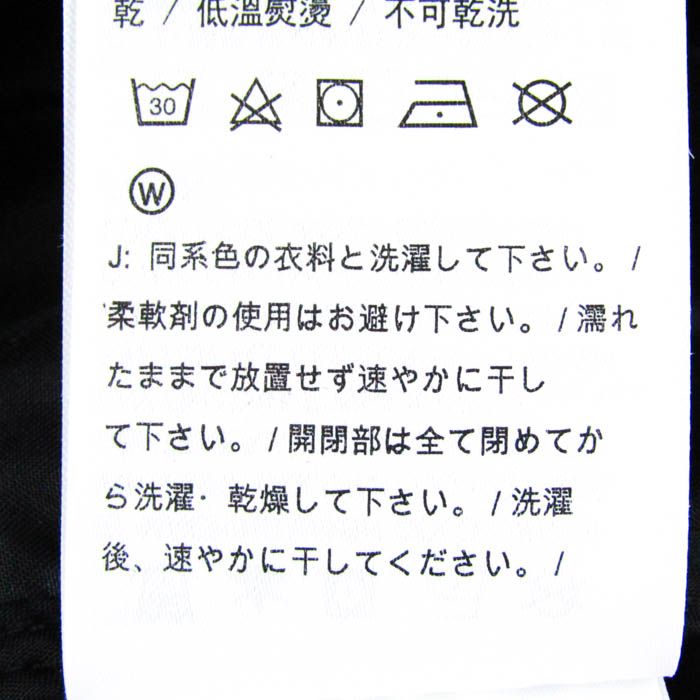 乾 / 低溫熨燙 / 不可乾洗
30
W
J: 同系色の衣料と洗濯して下さい。 /
柔軟剤の使用はお避け下さい。 / 濡れ
たままで放置せず速やかに干し
て下さい。 / 開閉部は全て閉めてか
ら洗濯· 乾燥して下さい。 / 洗濯
後、速やかに干してください。 /